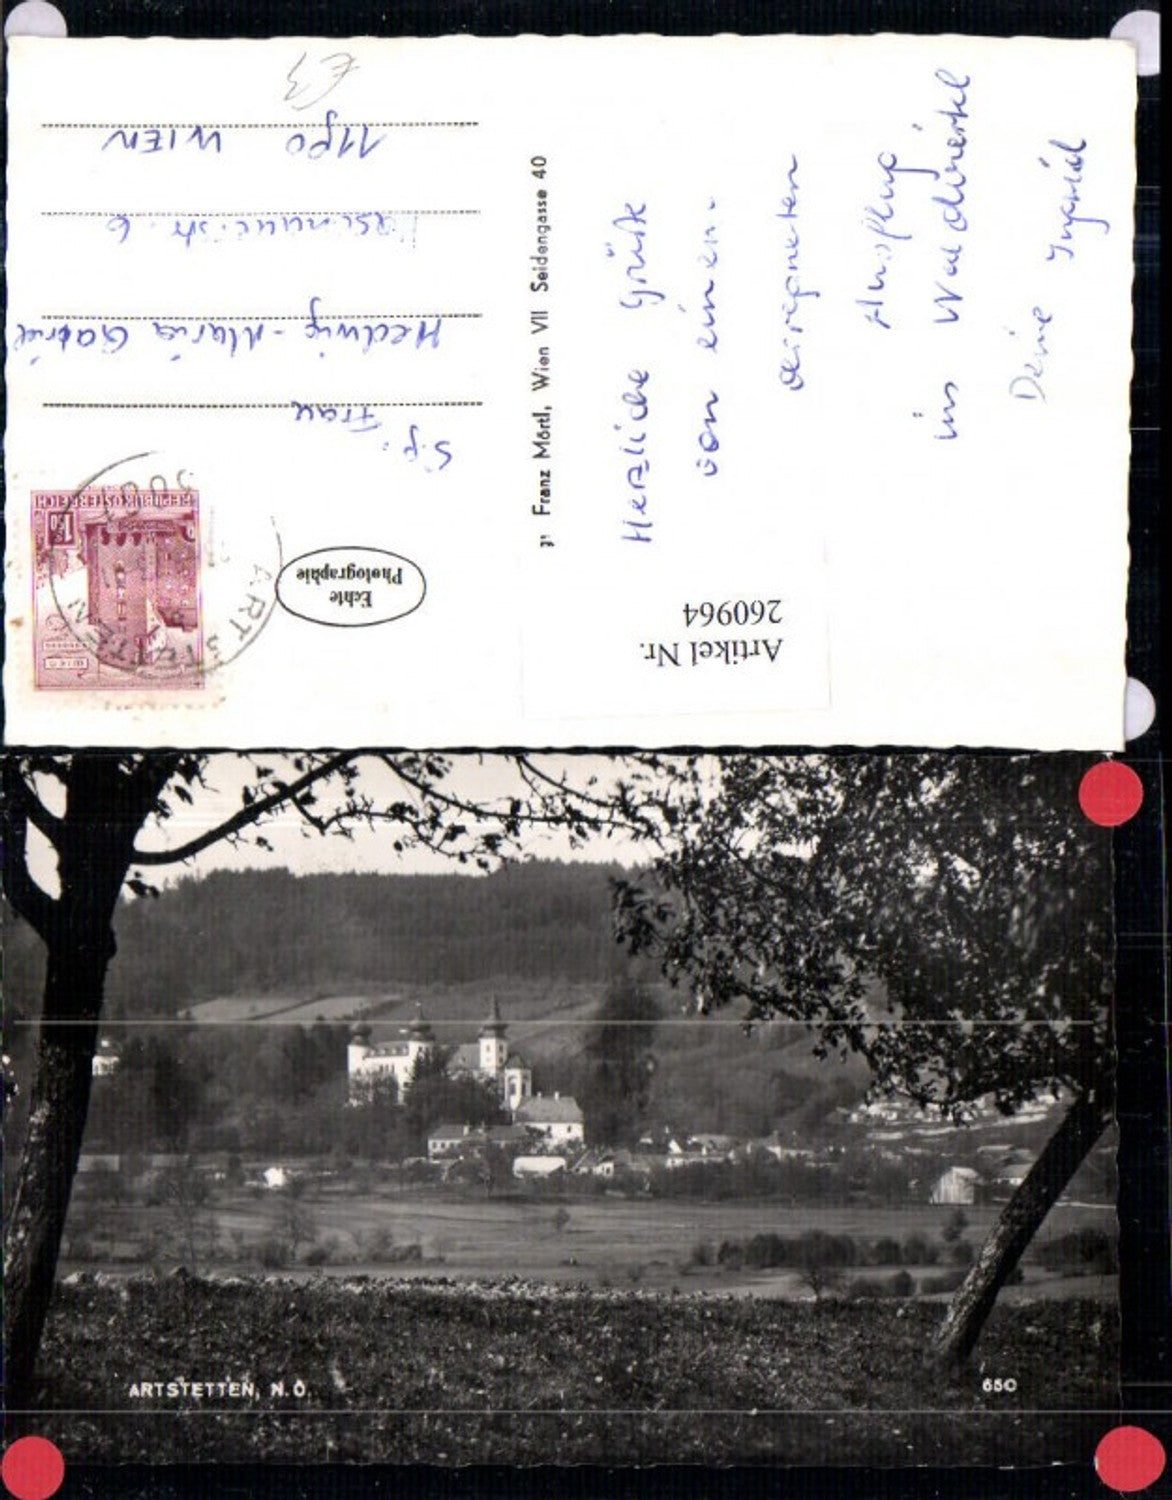 Herzliche Grüße
von einem
verregneten
Ausflug
ins Waldviertel
Deine Ingrid
Franz Mörtl, Wien VII Seidengasse 40
Artikel Nr.
260964
Echte
Photographie
REPUBLIK ÖSTERREICH
ARTSTETTEN
S.g.
Frau
Hedwig-Maria Gabriel
6
1190 WIEN
€3
ARTSTETTEN, N.Ö.
650